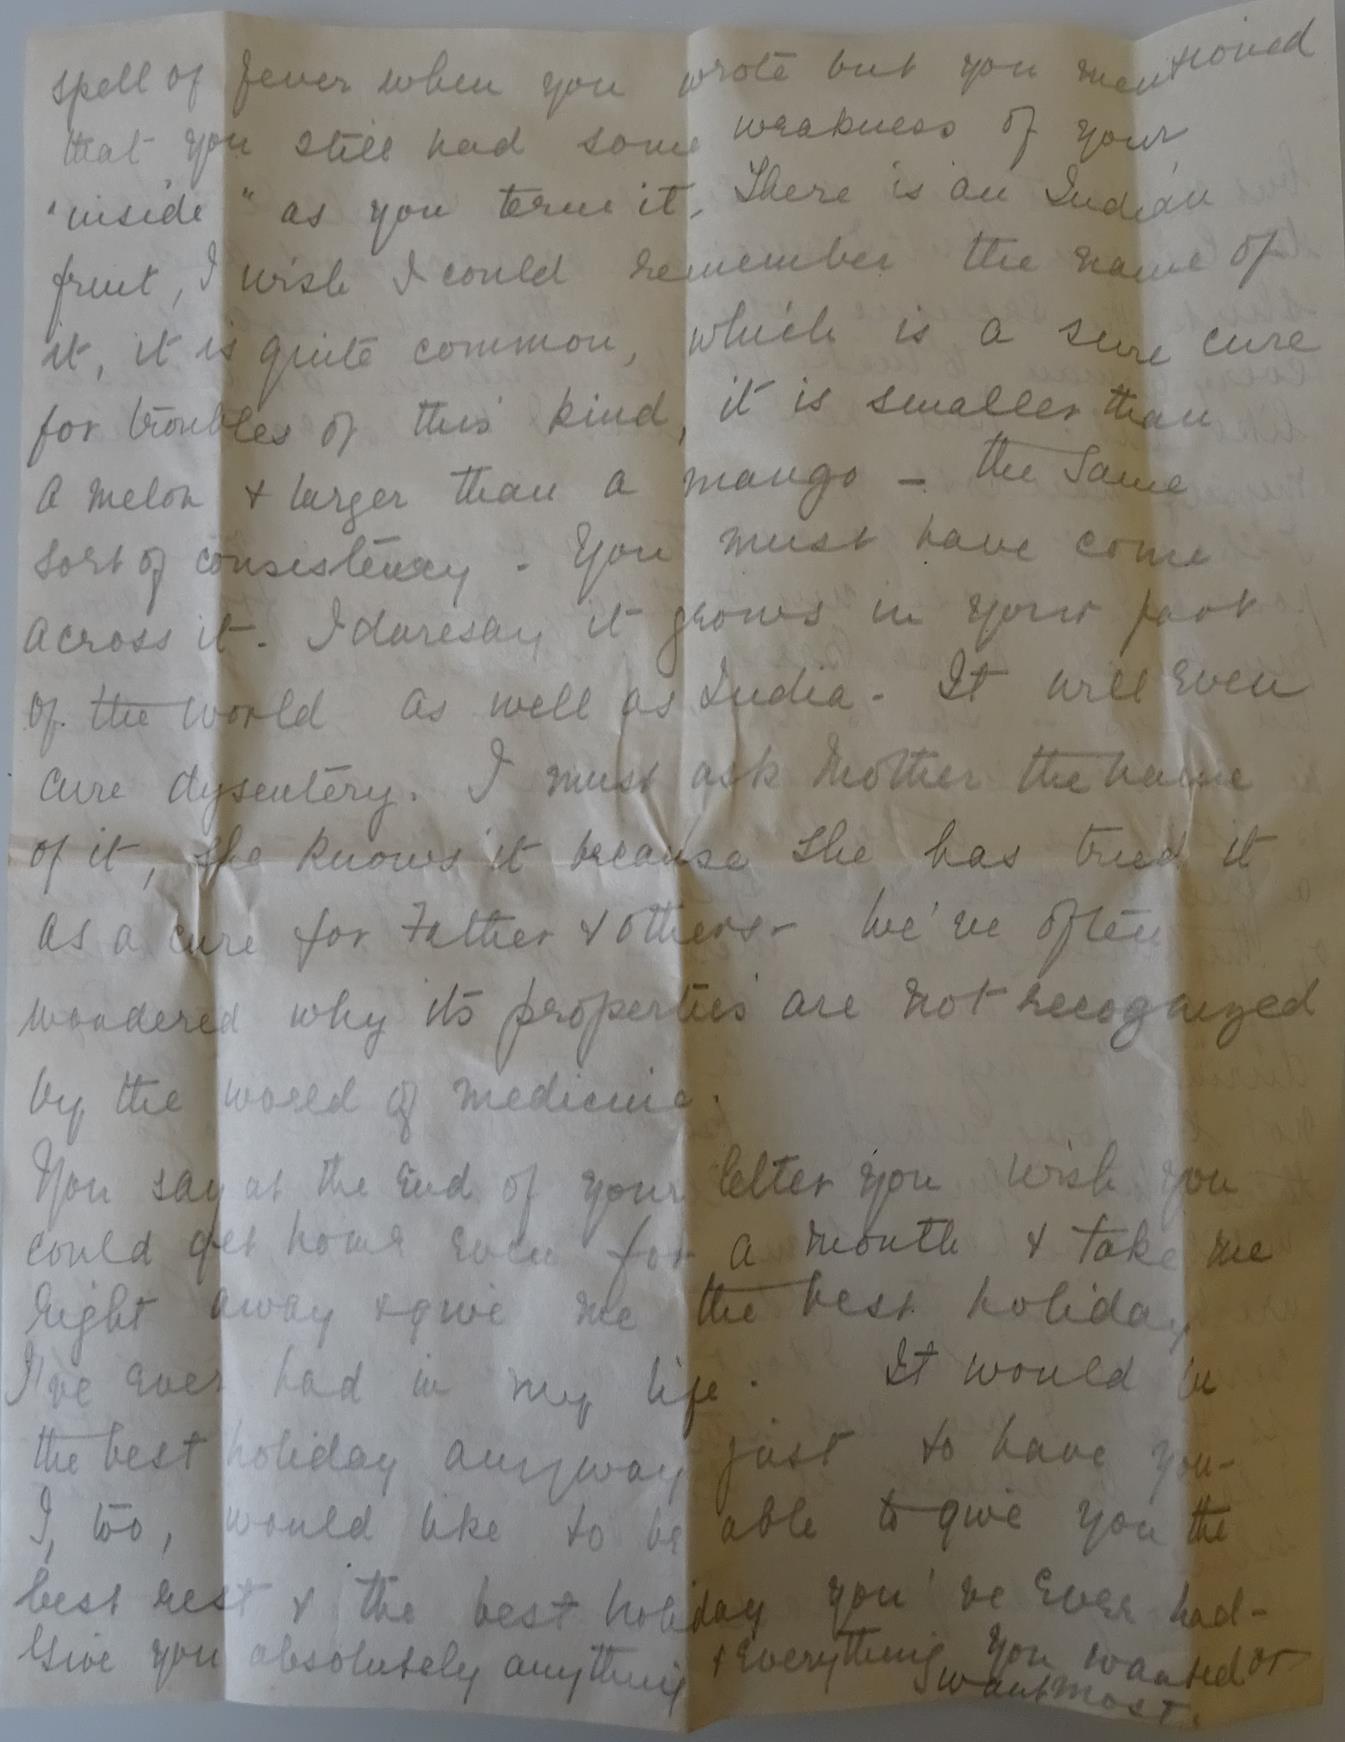 spell of fever when you wrote but you mentioned
that you still had some weakness of your
"inside" as you term it. There is an Indian
fruit, I wish I could remember the name of
it, it is quite common, which is a sure cure
for troubles of this kind, it is smaller than
a melon & larger than a mango - the same
sort of consistency. You must have come
across it. I daresay it grows in your part
of the world as well as India. It will even
cure dysentery. I must ask Mother the name
of it, she knows it because she has tried it
as a cure for Father & others. We've often
wondered why its properties are not recognized
by the world of medicine.
You say at the end of your letter you wish you
could get home even for a month & take me
right away & give me the best holiday
I've ever had in my life. It would be
the best holiday anyway just to have you -
I, too, would like to be able to give you the
best rest & the best holiday you've ever had -
Give you absolutely anything & everything you wanted or
want most.